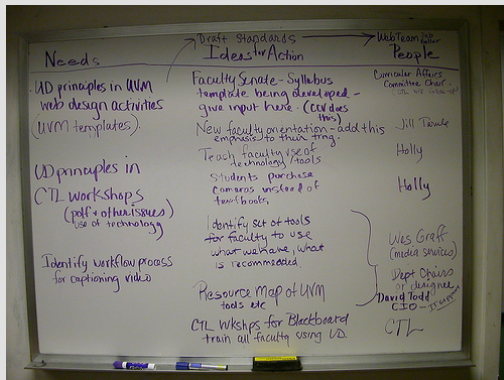 Needs
UD principles in UVM
web design activities
(UVM templates).
UD principles in
CTL workshops
(pdf + other issues)
use of technology
Identify workflow process
for captioning video
Draft Standards
Ideas for Action
Faculty Senate - Syllabus
template being developed -
give input here. (CCV does
this)
New faculty orientation - add this
emphasis to their trng.
Teach faculty use of
technology/tools
Students purchase
cameras instead of
textbooks
Identify set of tools
for faculty to use
what we have, what
is recommended
Resource Map of UVM
tools etc
CTL Wkshps for Blackboard
train all faculty using UD.
WebTeam
People
Curricular Affairs
Committee Chair.
Jill Tarule
Holly
Holly
Wes Graff
(media services)
Dept Chairs
or designee
David Todd
CIO -
CTL